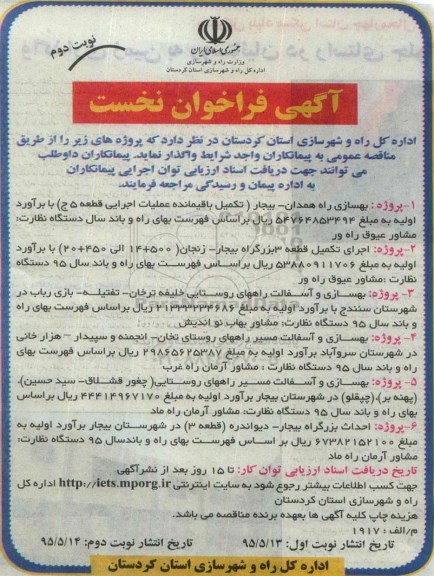 نوبت دوم
جمهوری اسلامی ایران
وزارت راه و شهرسازی
اداره کل راه و شهرسازی استان کردستان
آگهی فراخوان نخست
اداره کل راه و شهرسازی استان کردستان در نظر دارد که پروژه های زیر را از طریق
مناقصه عمومی به پیمانکاران واجد شرایط واگذار نماید. پیمانکاران داوطلب
می توانند جهت دریافت اسناد ارزیابی توان اجرایی پیمانکاران
به اداره پیمان و رسیدگی مراجعه فرمایند.
۱-پروژه: بهسازی راه همدان- بیجار ( تکمیل باقیمانده عملیات اجرایی قطعه ۵ ج) با برآورد
اولیه به مبلغ ۵۴۷۶۴۸۵۳۴۹۴ ریال براساس فهرست بهای راه و باند سال دستگاه نظارت:
مشاور عیوق راه ور
۲-پروژه: اجرای تکمیل قطعه ۳بزرگراه بیجار- زنجان( ۵۰۰+۱۴ الی ۴۵۰+۲۰) با برآورد
اولیه به مبلغ ۵۳۸۸۰۹۱۱۷۰۶ ریال براساس فهرست بهای راه و باند سال ۹۵ دستگاه
نظارت :مشاور عیوق راه ور
۳- پروژه: بهسازی و آسفالت راههای روستایی خلیفه ترخان- تفتیله- بازی رباب در
شهرستان سنندج با برآورد اولیه به مبلغ ۲۱۳۳۳۲۳۴۶۸۶ ریال براساس فهرست بهای راه
و باند سال ۹۵ دستگاه نظارت: مشاور بهاب نو اندیش
۴- پروژه: بهسازی و آسفالت مسیر راههای روستای نخان- انجمنه و سپیدار - هزار خانی
در شهرستان سروآباد برآورد اولیه به مبلغ ۲۹۸۶۵۶۲۵۳۸۷ ریال براساس فهرست بهای
راه و باند سال ۹۵ دستگاه نظارت : مشاور آرمان راه غرب
۵- پروژه: بهسازی و آسفالت مسیر راههای روستایی( چغور قشلاق- سید حسین)،
(پهنه بر)،(چپقلو) در شهرستان بیجار برآورد اولیه به مبلغ ۴۴۴۱۴۹۶۷۱۷۰ ریال براساس فهرست
بهای راه و باند سال ۹۵ دستگاه نظارت: مشاور آرمان راه ماد
۶-پروژه: احداث بزرگراه بیجار- دیواندره (قطعه ۳) در شهرستان بیجار برآورد اولیه به
مبلغ ۶۷۳۸۲۱۵۲۱۰۰ ریال بر اساس فهرست بهای راه و باندسال ۹۵ دستگاه نظارت:
مشاور آرمان راه ماد
تاریخ دریافت اسناد ارزیابی توان کار: تا ۱۵ روز بعد از نشرآگهی
جهت کسب اطلاعات بیشتر رجوع شود به سایت اینترنتی http://iets.mporg.ir اداره کل
راه و شهرسازی استان کردستان
هزینه چاپ کلیه آگهی ها بعهده برنده مناقصه می باشد.
م/الف : ۱۹۱۷
تاریخ انتشار نوبت اول: ۹۵/۵/۱۳ تاریخ انتشار نوبت دوم: ۹۵/۵/۱۴
اداره کل راه و شهرسازی استان کردستان